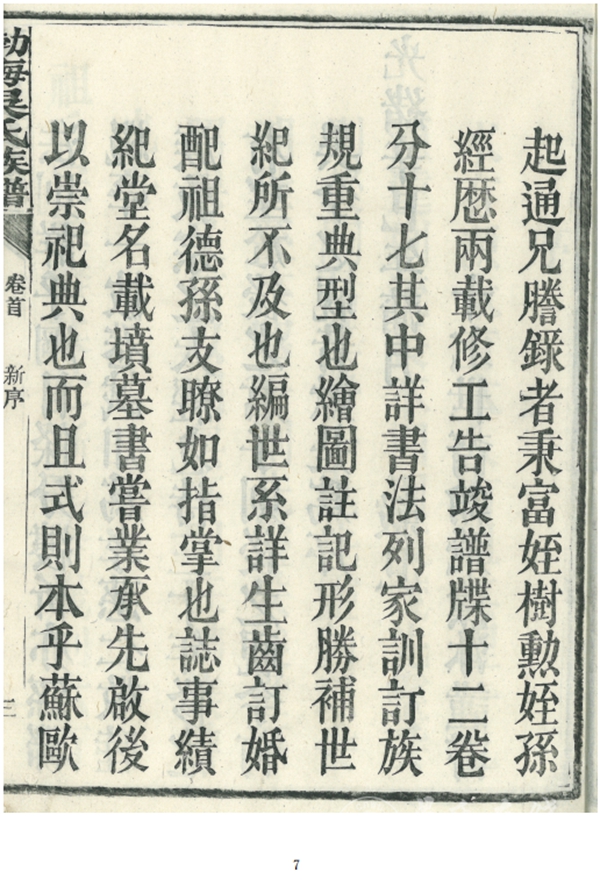 起通兄謄錄者秉富姪樹勳姪孫
經歷兩載修工告竣譜牒十二卷
分十七其中詳書法列家訓訂族
規重典型也繪圖註記形勝補世
紀所不及也編世系詳生齒訂婚
配祖德孫支瞭如指掌也誌事績
紀堂名載墳墓書嘗業承先啟後
以崇祀典也而且式則本乎蘇歐
勃海吳氏族譜
卷首
新序
三
7